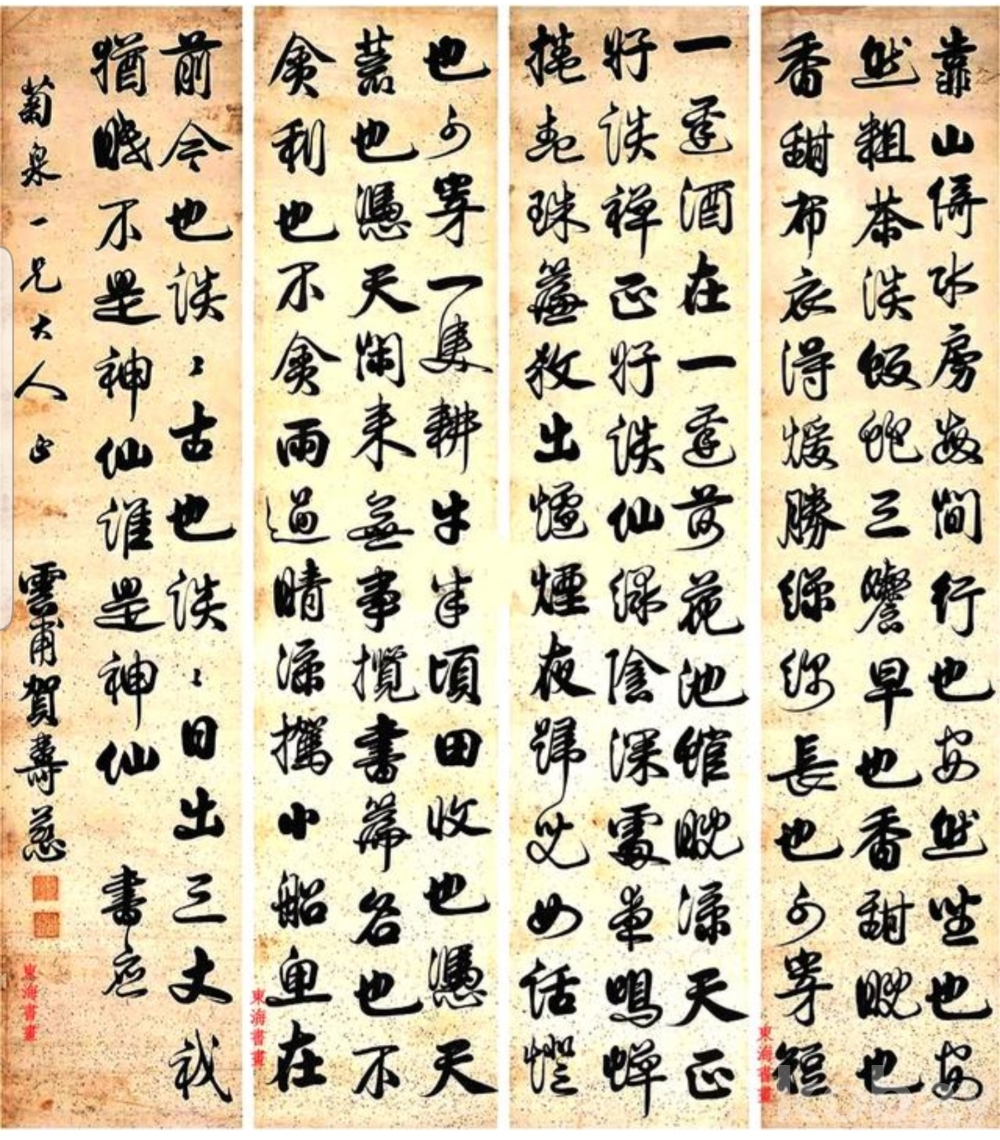 靠山傍水房數間行也安然坐也安
然粗茶淡飯飽三餐早也香甜晚也
香甜布衣得煖勝絲綿長也可穿短
一蓬酒在一蓬荷花池館晚涼天正
好談禪正好談仙綠陰深處鳴蟬
捲起珠簾放出爐煙夜歸如話燈
也可穿一隻耕牛半頃田收也憑天
荒也憑天閑來無事攬書篇名也不
貪利也不貪雨過晴涼攜小船魚在
前今也談々古也談々日出三丈我
猶眠不是神仙誰是神仙 書應
菊泉一兄大人正 雲甫賀壽慈
東海書畫
東海書畫
東海書畫